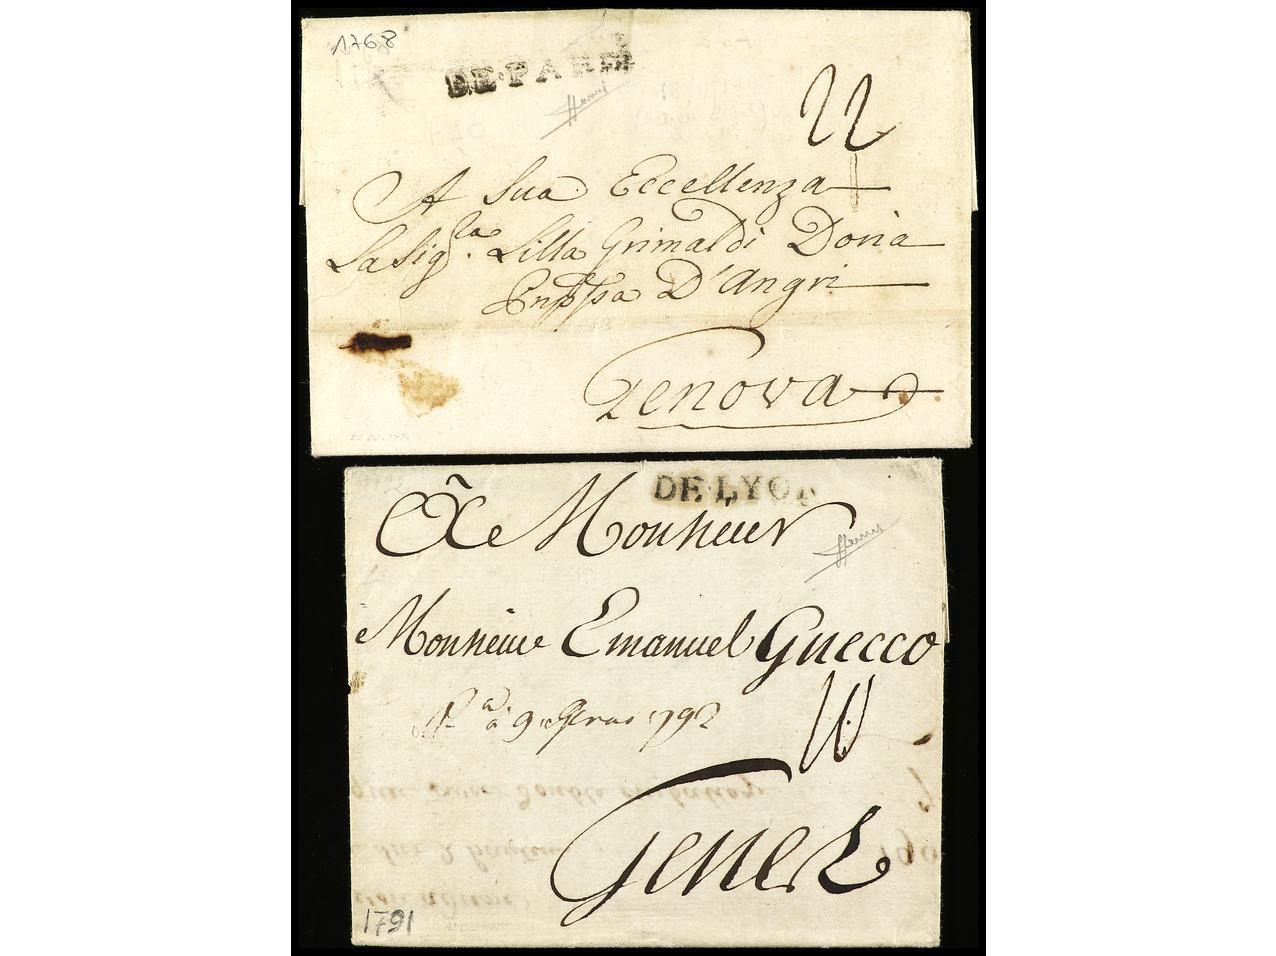 1768
DE·PARIS
22
A Sua Eccellenza
La Sig.ra Lilla Grimaldi Doria
Prnpssa D'Angri
Genova
DE·LYON
A Monsieur
Monsieur Emanuel Guecco
1792
10
Genes
1791